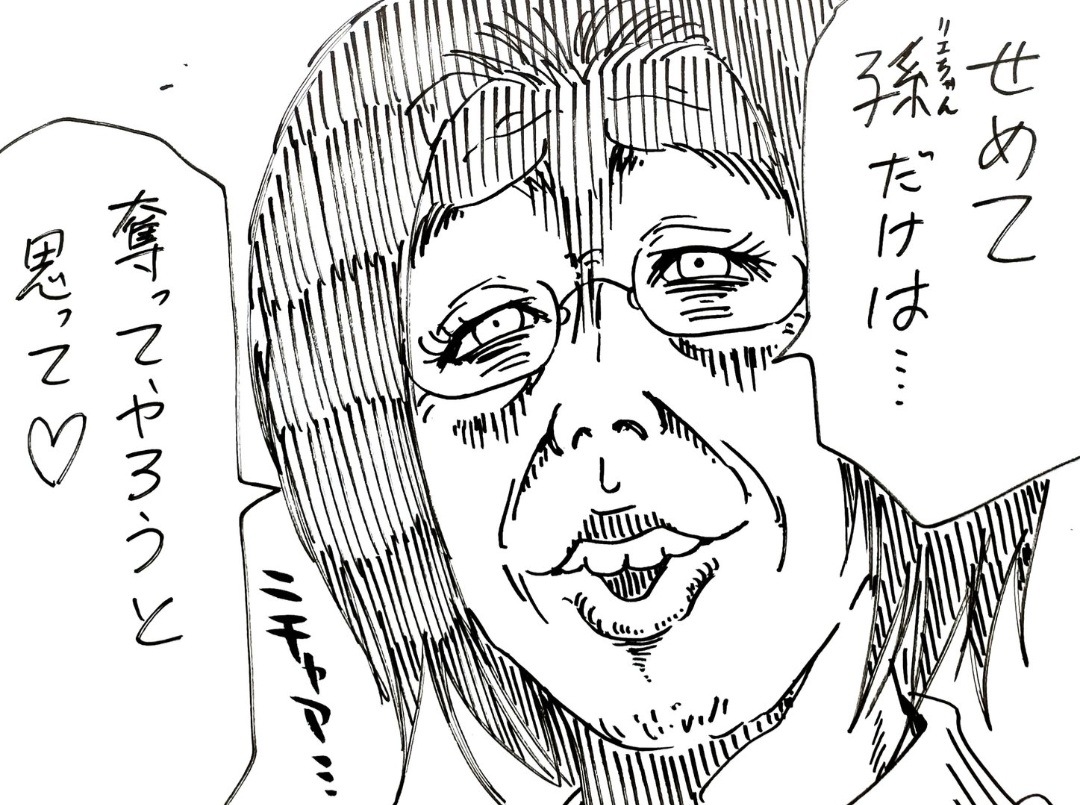 せめて
孫リエちゃんだけは…
奪ってやろうと
思って♡
ニチャア…